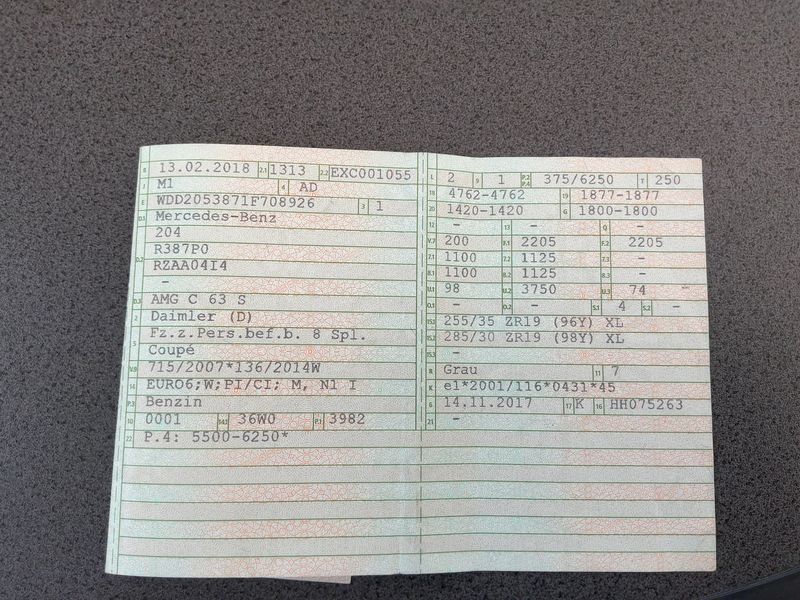 B 13.02.2018 2.1 1313 2.2 EXC001055
J M1 4 AD
E WDD2053871F708926 3 1
D.1 Mercedes-Benz
204
D.2 R387P0
RZAA04I4
-
D.3 AMG C 63 S
2 Daimler (D)
5 Fz.z.Pers.bef.b. 8 Spl.
Coupé
V.9 715/2007*136/2014W
14 EURO6;W;PI/CI; M, N1 I
P.3 Benzin
10 0001 14.1 36W0 P.1 3982
22 P.4: 5500-6250*
L 2 9 1 P.2 P.4 375/6250 T 250
18 4762-4762 19 1877-1877
20 1420-1420 G 1800-1800
12 - 13 - Q -
V.7 200 F.1 2205 F.2 2205
7.1 1100 7.2 1125 7.3 -
8.1 1100 8.2 1125 8.3 -
U.1 98 U.2 3750 U.3 74
O.1 - O.2 - S.1 4 S.2 -
15.1 255/35 ZR19 (96Y) XL
15.2 285/30 ZR19 (98Y) XL
15.3 -
R Grau 11 7
K e1*2001/116*0431*45
6 14.11.2017 17 K 16 HH075263
21 -